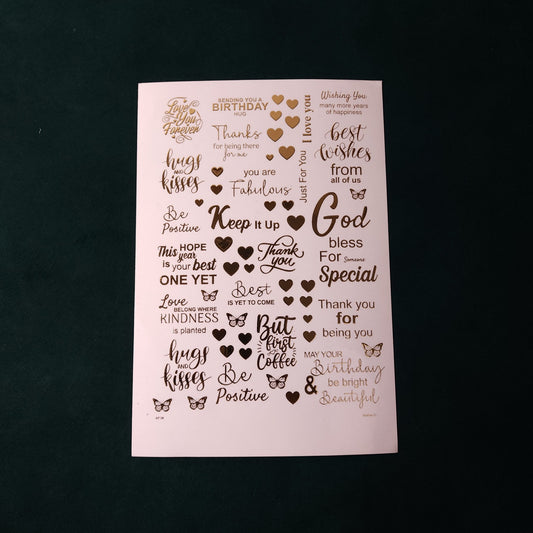 Love
You
Forever
SENDING YOU A
BIRTHDAY
HUG
Thanks
for being there
for me
I love you
Just For You
Wishing You,
many more years
of happiness
best
wishes
from
all of us
hugs
AND
kisses
you are
Fabulous
Be
Positive
Keep It Up
God
bless
For Someone
Special
This HOPE
year
is your best
ONE YET
Thank
you
Love
BELONG WHERE
KINDNESS
is planted
Best
IS YET TO COME
Thank you
for
being you
But
first
Coffee
hugs
AND
kisses
Be
Positive
MAY YOUR
Birthday
be bright
& Beautiful